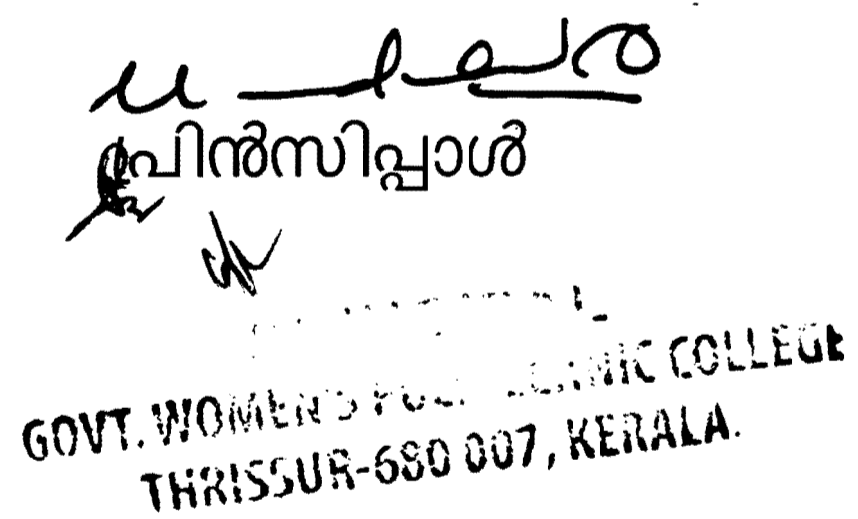 പ്രിൻസിപ്പാൾ
GOVT. WOMEN'S POLYTECHNIC COLLEGE
THRISSUR-680 007, KERALA.